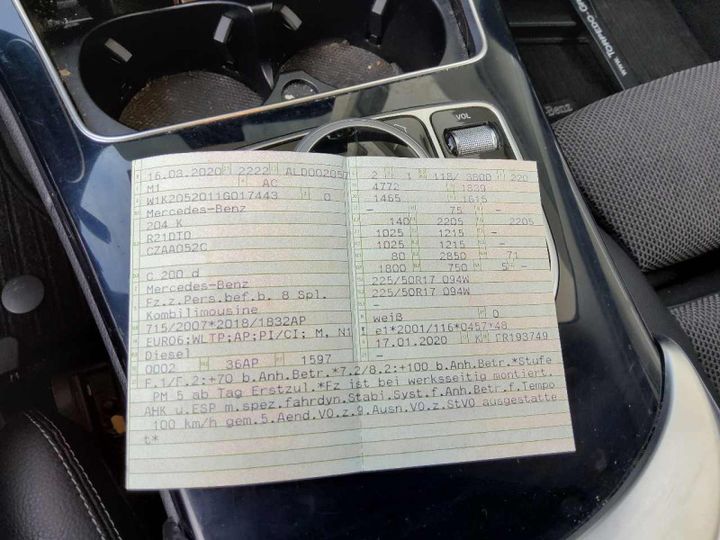 www.TORPEDO-GR
Benz
VOL
16.03.2020 2222 ALD002057
M1 AC
W1K2052011G017443 0
Mercedes-Benz
204 K
R21DT0
CZAA052C
C 200 d
Mercedes-Benz
Fz.z.Pers.bef.b. 8 Spl.
Kombilimousine
715/2007*2018/1832AP
EURO6;WLTP;AP;PI/CI; M, N1
Diesel
0002 36AP 1597
2 1 118/ 3800 220
4772 1839
1465 1615
- 75 -
140 2205 2205
1025 1215 -
1025 1215 -
80 2850 71
1800 750 5 -
225/50R17 094W
225/50R17 094W
weiß 0
e1*2001/116*0457*48
17.01.2020 K
-
F.1/F.2:+70 b.Anh.Betr.*7.2/8.2:+100 b.Anh.Betr.*Stufe
PM 5 ab Tag Erstzul.*Fz ist bei werksseitig montiert.
AHK u.ESP m.spez.fahrdyn.Stabi.Syst.f.Anh.Betr.f.Tempo
100 km/h gem.5.Aend.VO.z.9.Ausn.VO.z.StVO ausgestatte
t*